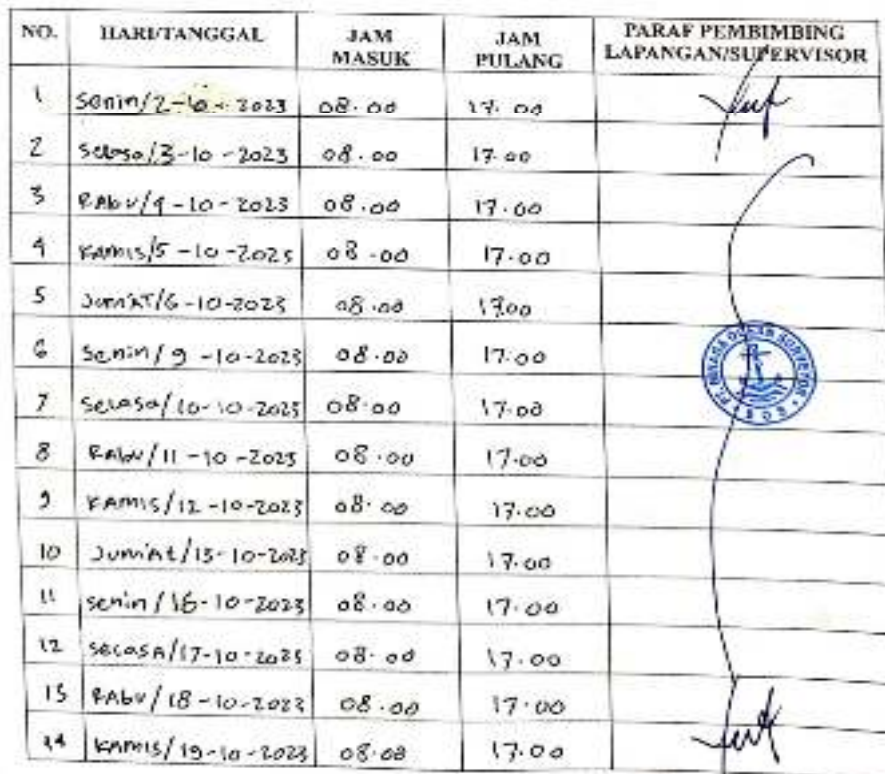 NO. HARI/TANGGAL JAM MASUK JAM PULANG PARAF PEMBIMBING LAPANGAN/SUPERVISOR
1 Senin/2-10-2023 08.00 17.00
2 Selasa/3-10-2023 08.00 17.00
3 RAbu/4-10-2023 08.00 17.00
4 KAMIS/5-10-2023 08.00 17.00
5 Jum'AT/6-10-2023 08.00 17.00
6 Senin/9-10-2023 08.00 17.00
7 Selasa/10-10-2023 08.00 17.00
8 RAbu/11-10-2023 08.00 17.00
9 KAMIS/12-10-2023 08.00 17.00
10 Jum'At/13-10-2023 08.00 17.00
11 senin/16-10-2023 08.00 17.00
12 SelasA/17-10-2023 08.00 17.00
13 RAbu/18-10-2023 08.00 17.00
14 KAMIS/19-10-2023 08.00 17.00